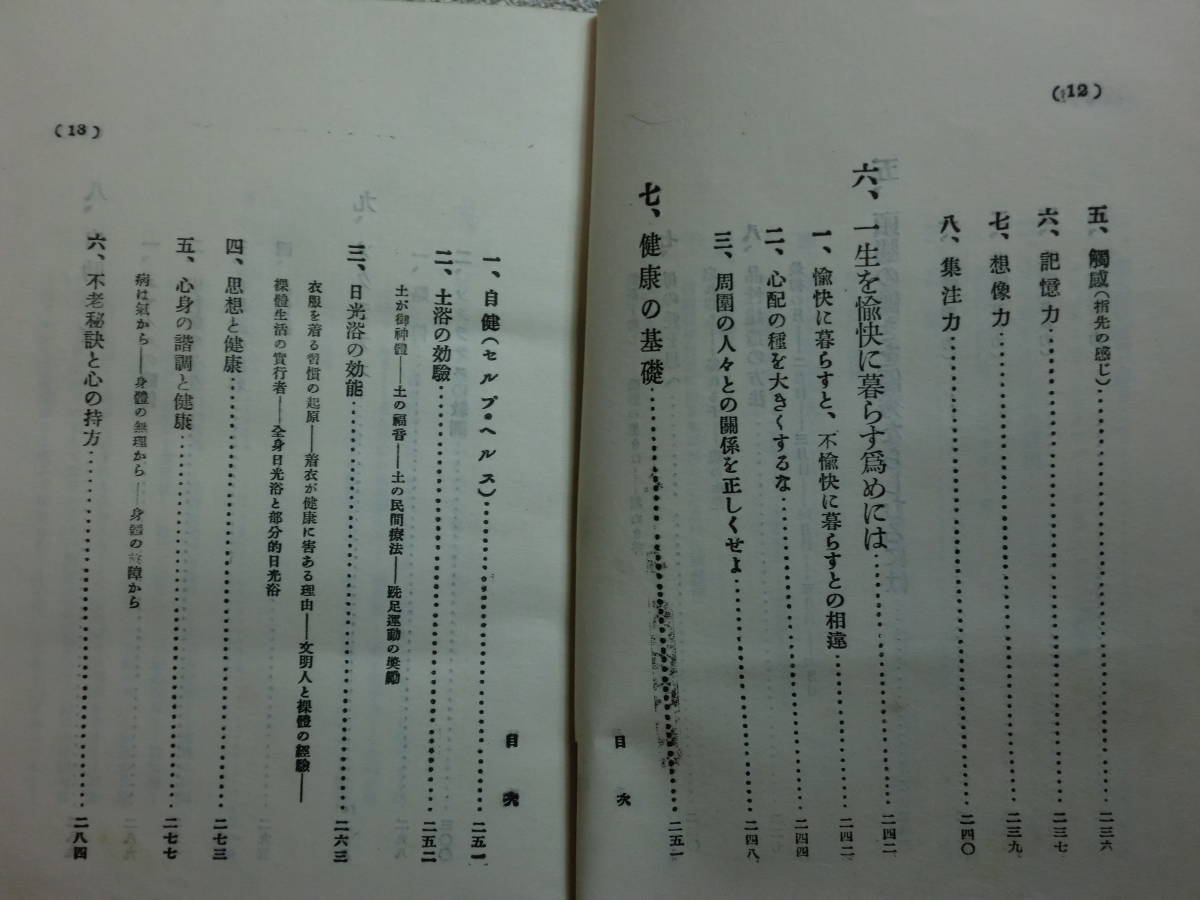 (12)
五、觸感(指先の感じ)…………二三六
六、記憶力…………二三七
七、想像力…………二三九
八、集注力…………二四〇
六、一生を愉快に暮らす爲めには…………二四二
一、愉快に暮らすと、不愉快に暮らすとの相違…………二四二
二、心配の種を大きくするな…………二四四
三、周圍の人々との關係を正しくせよ…………二四八
七、健康の基礎…………二五一
目次
目次
一、自健(セルプ・ヘルス)…………二五一
二、土浴の効驗…………二五二
土が御神體——土の福音——土の民間療法——跣足運動の奬勵
三、日光浴の効能…………二六三
衣服を着る習慣の起原——着衣が健康に害ある理由——文明人と裸體の經驗——
裸體生活の實行者——全身日光浴と部分的日光浴
四、思想と健康…………二七三
五、心身の諧調と健康…………二七七
病は氣から——身體の無理から——身體の故障から
六、不老秘訣と心の持方…………二八四
(13)